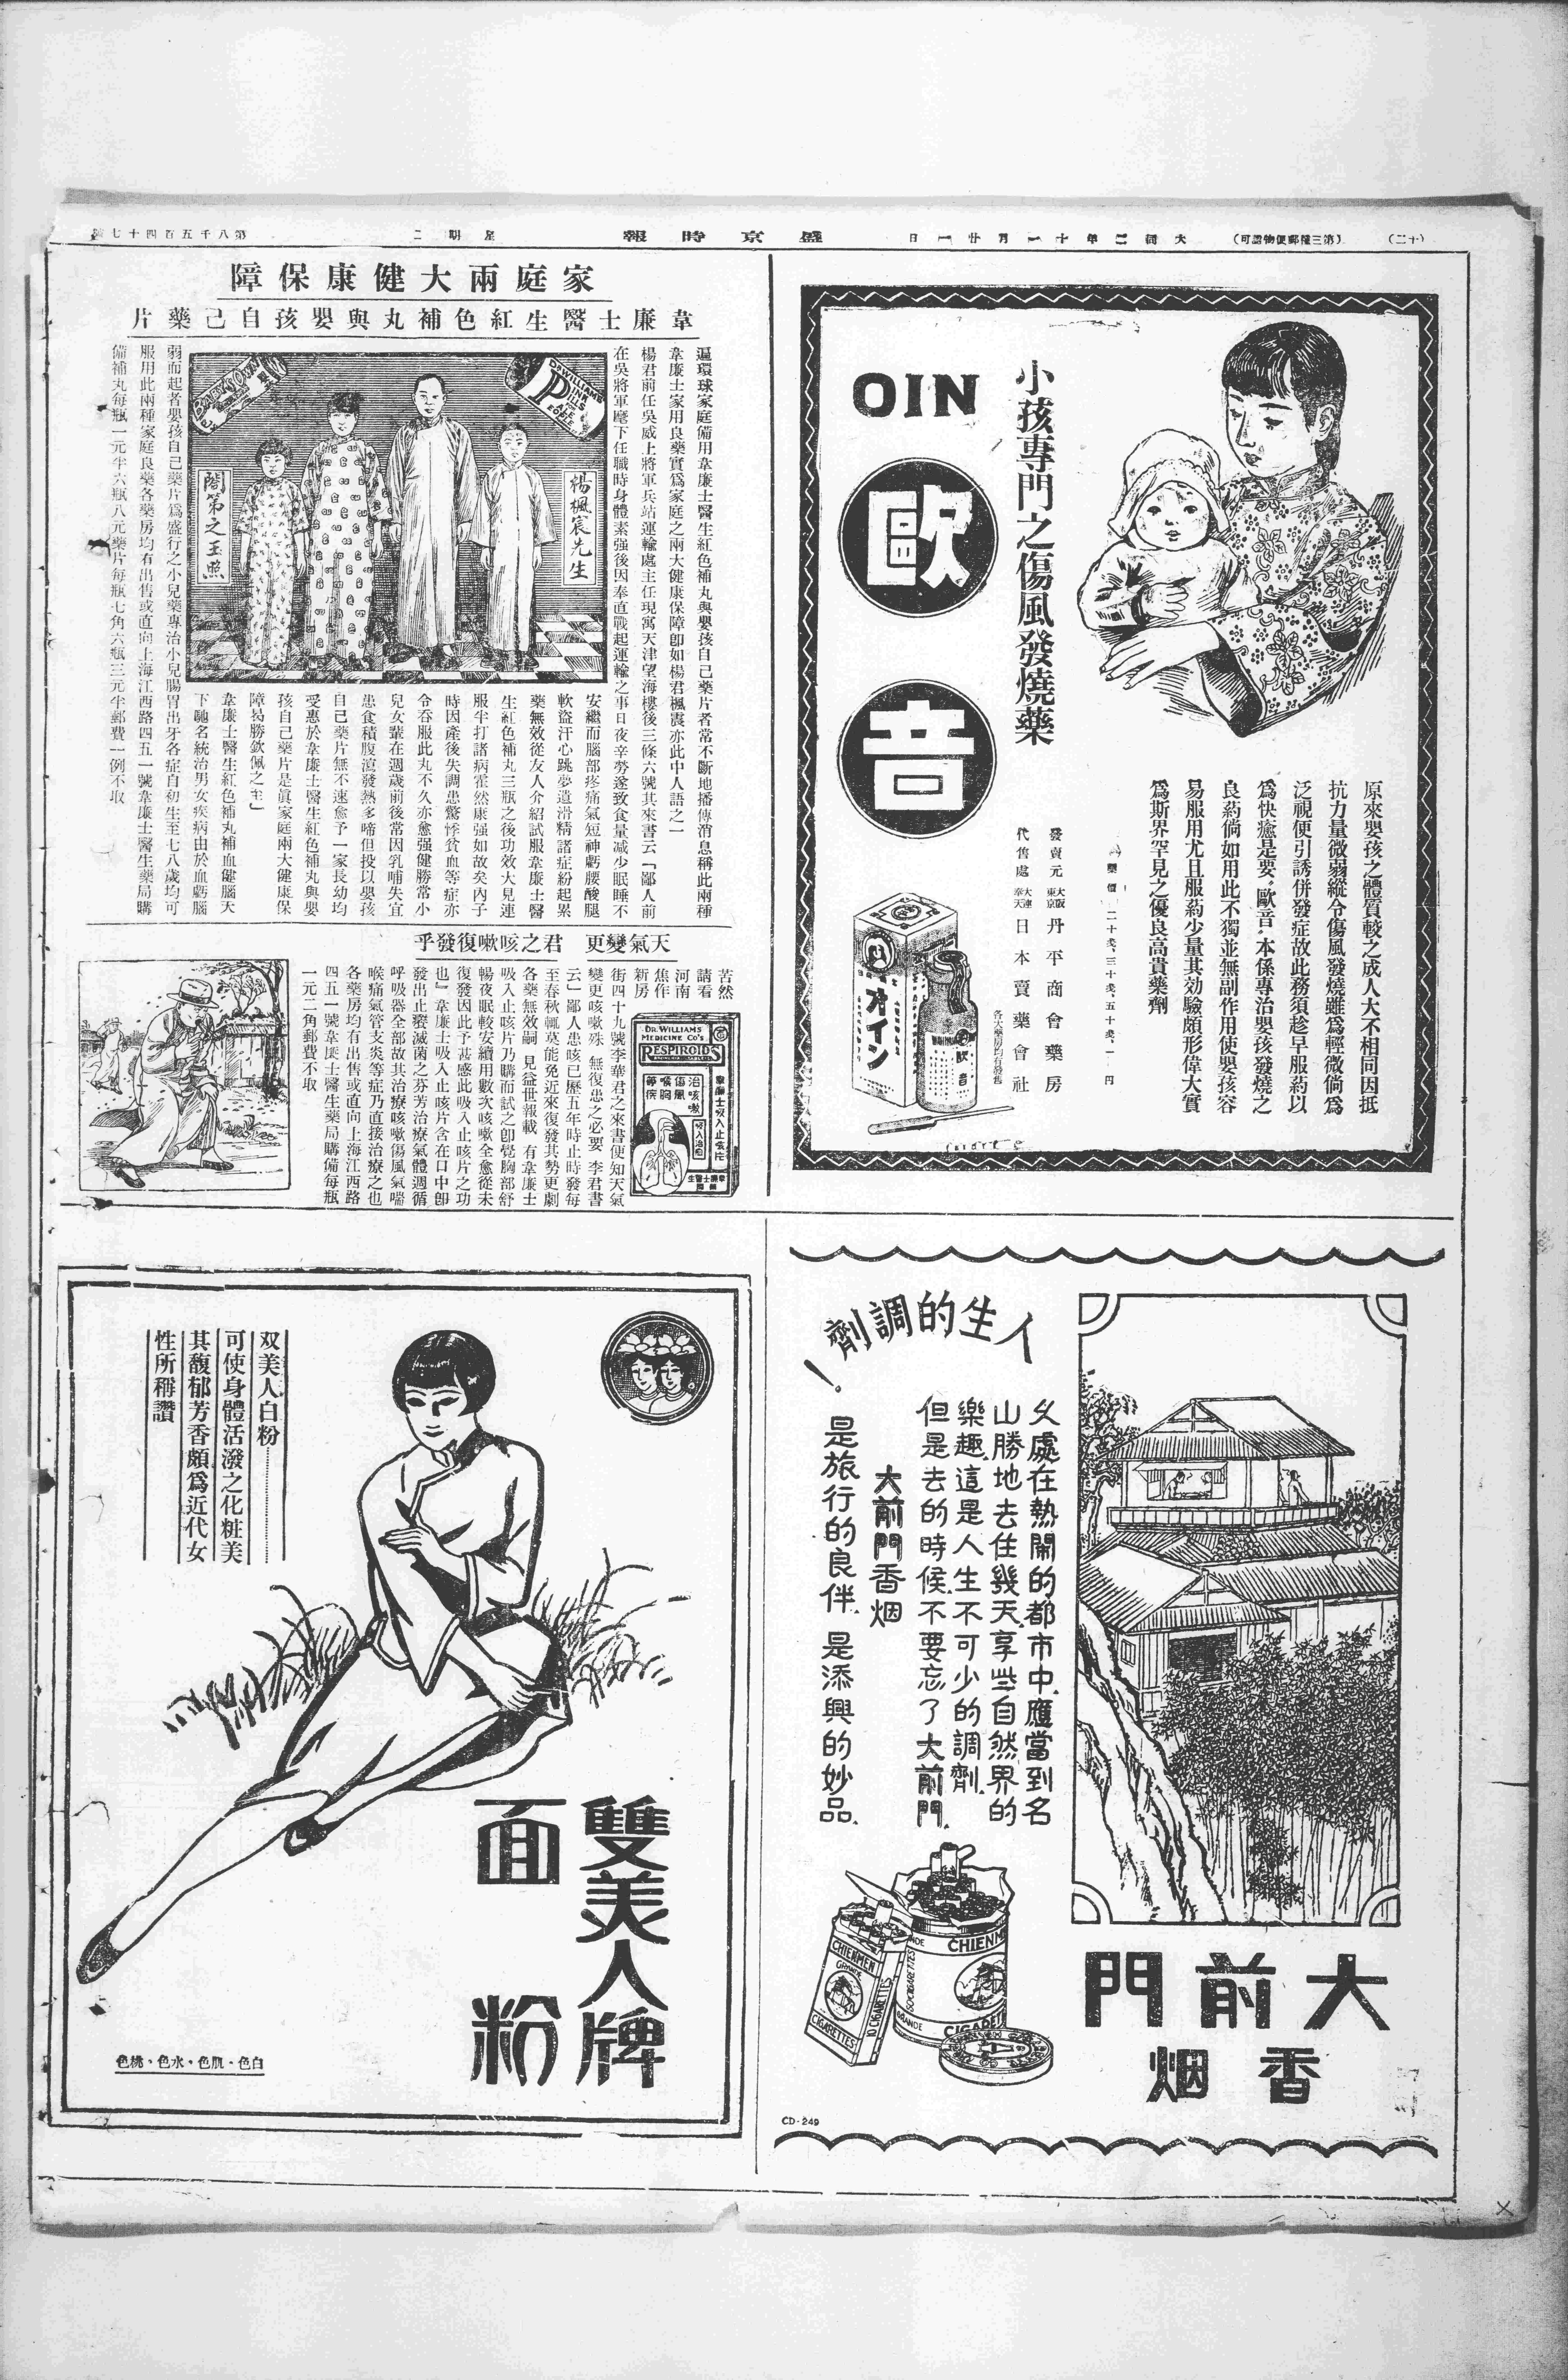 (二十)
(第三種郵便物認可)
大同二年十一月廿一日
盛京時報
星期二
第八千五百四十七號
OIN
歐音
小孩專門之傷風發燒藥
原來嬰孩之體質較之成人大不相同因抵
抗力量微弱縱令傷風發燒雖爲輕微倘爲
泛視便引誘併發症故此務須趁早服葯以
爲快癒是要、歐音、本係專治嬰孩發燒之
良葯倘如用此不獨並無副作用使嬰孩容
易服用尤且服葯少量其効驗頗形偉大實
爲斯界罕見之優良高貴藥劑
藥價 二十戔、三十戔、五十戔、一円
發賣元 大阪東京 丹平商會藥房
代售處 大連奉天 日本賣藥會社
各大藥房均有發售
オイン
歐音
家庭兩大健康保障
韋廉士醫生紅色補丸與嬰孩自己藥片
遍環球家庭備用韋廉士醫生紅色補丸與嬰孩自己藥片者常不斷地播傳消息稱此兩種
韋廉士家用良藥實爲家庭之兩大健康保障卽如楊君楓宸亦此中人語之一
楊君前任吳威上將軍兵站運輸處主任現寓天津望海樓後三條六號其來書云「鄙人前
在吳將軍麾下任職時身體素强後因奉直戰起運輸之事日夜辛勞遂致食量減少眠睡不
安繼而腦部疼痛氣短神虧腰酸腿
軟盜汗心跳夢遺滑精諸症紛起累
藥無效從友人介紹試服韋廉士醫
生紅色補丸三瓶之後功效大見連
服半打諸病霍然康强如故矣內子
時因產後失調患驚悸貧血等症亦
令吞服此丸不久亦愈强健勝常小
兒女輩在週歲前後常因乳哺失宜
患食積腹瀉發熱多啼但投以嬰孩
自己藥片無不速愈予一家長幼均
受惠於韋廉士醫生紅色補丸與嬰
孩自己藥片是眞家庭兩大健康保
障曷勝欽佩之主」
韋廉士醫生紅色補丸補血健腦天
下馳名統治男女疾病由於血虧腦
弱而起者嬰孩自己藥片爲盛行之小兒藥專治小兒腸胃出牙各症自初生至七八歲均可
服用此兩種家庭良藥各藥房均有出售或直向上海江西路四五一號韋廉士醫生藥局購
備補丸每瓶一元半六瓶八元藥片每瓶七角六瓶三元半郵費一例不取
楊楓宸先生
閤第之玉照
DR. WILLIAMS
PINK
PILLS
天氣變更 君之咳嗽復發乎
苦然
請看
河南
焦作
新房
街四十九號李華君之來書便知天氣
變更咳嗽殊 無復患之必要 李君書
云「鄙人患咳已歷五年時止時發每
至春秋輒莫能免近來復發其勢更劇
各藥無效嗣 見益世報載 有韋廉士
吸入止咳片乃購而試之卽覺胸部舒
暢夜眠較安續用數次咳嗽全愈從未
復發因此予甚感此吸入止咳片之功
也」韋廉士吸入止咳片含在口中卽
發出止嗽滅菌之芬芳治療氣體週循
呼吸器全部故其治療咳嗽傷風氣喘
喉痛氣管支炎等症乃直接治療之也
各藥房均有出售或直向上海江西路
四五一號韋廉士醫生藥局購備每瓶
一元二角郵費不取
DR. WILLIAMS
MEDICINE CO'S
RESPIROIDS
韋廉士吸入止咳片
治咳嗽
傷風
喉胸
等疾
人生的調劑!
久處在熱鬧的都市中、應當到名
山勝地去住幾天、享些自然界的
樂趣、這是人生不可少的調劑、
但是去的時候、不要忘了大前門、
大前門香烟
是旅行的良伴、是添興的妙品、
大前門
香烟
CHIENMEN
GRANDE
CIGARETTES
10 CIGARETTES
CD-249
双美人白粉
可使身體活潑之化粧美
其馥郁芳香頗爲近代女
性所稱讚
雙美人牌
面粉
白色・肌色・水色・桃色